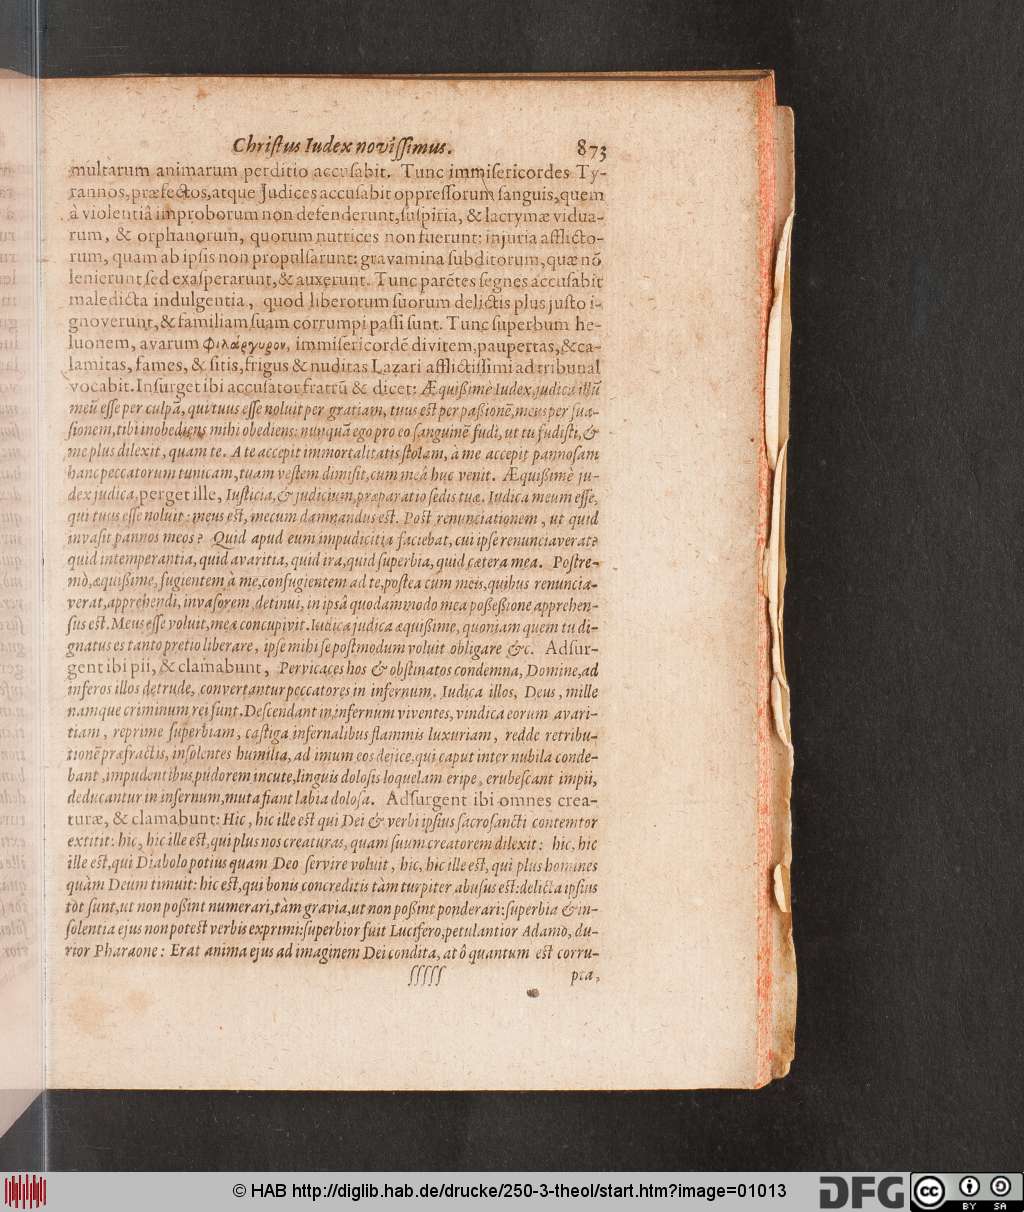 Christus Iudex novissimus. 873
multarum animarum perditio accusabit. Tunc immisericordes Ty-
rannos, præfectos, atque Judices accusabit oppressorum sanguis, quem
â violentiâ improborum non defenderunt, suspiria, & lacrymæ vidua-
rum, & orphanorum, quorum nutrices non fuerunt: injuria afflicto-
rum, quam ab ipsis non propulsarunt: gravamina subditorum, quæ nõ
lenierunt sed exasperarunt, & auxerunt. Tunc parẽtes segnes accusabit
maledicta indulgentia, quod liberorum suorum delictis plus justo i-
gnoverunt, & familiam suam corrumpi passi sunt. Tunc superbum he-
luonem, avarum Φιλάργυρον, immisericordẽ divitem, paupertas, & ca-
lamitas, fames, & sitis, frigus & nuditas Lazari afflictissimi ad tribunal
vocabit. Insurget ibi accusator fratrũ & dicet: Æquißimè Iudex, judica illũ
meũ esse per culpã, qui tuus esse noluit per gratiam, tuus est per paßionẽ, meus per sua-
sionem, tibi inobediens mihi obediens: nunquã ego pro eo sanguinẽ fudi, ut tu fudisti, &
me plus dilexit, quam te. A te accepit immortalitatis stolam, à me accepit pannosam
hanc peccatorum tunicam, tuam vestem dimisit, cum meâ huc venit. Æquißimè ju-
dex judica, perget ille, Iusticia, & judicium, præparatio sedis tuæ. Iudica meum esse,
qui tuus esse noluit: meus est, mecum damnandus est. Post renunciationem, ut quid
invasit pannos meos? Quid apud eum impudicitia faciebat, cui ipse renunciaverat?
quid intemperantia, quid avaritia, quid ira, quid superbia, quid cætera mea. Postre-
mò, æquißime, fugientem à me, confugientem ad te, postea cum meis, quibus renuncia-
verat, apprehendi, invasorem detinui, in ipsâ quodammodo mea poßeßione apprehen-
sus est. Meus esse voluit, mea concupivit. Iudica judica æquißime, quoniam quem tu di-
gnatus es tanto pretio liberare, ipse mihi se postmodum voluit obligare &c. Adsur-
gent ibi pii, & clamabunt, Pervicaces hos & obstinatos condemna, Domine, ad
inferos illos detrude, convertantur peccatores in infernum. Iudica illos, Deus, mille
namque criminum rei sunt. Descendant in infernum viventes, vindica eorum avari-
tiam, reprime superbiam, castiga infernalibus flammis luxuriam, redde retribu-
tionẽ præfractis, insolentes humilia, ad imum eos dejice, qui caput inter nubila conde-
bant, impudentibus pudorem incute, linguis dolosis loquelam eripe, erubescant impii,
deducantur in infernum, muta fiant labia dolosa. Adsurgent ibi omnes crea-
turæ, & clamabunt: Hic, hic ille est qui Dei & verbi ipsius sacrosancti contemtor
extitit: hic, hic ille est, qui plus nos creaturas, quam suum creatorem dilexit: hic, hic
ille est, qui Diabolo potius quam Deo servire voluit, hic, hic ille est, qui plus homines
quàm Deum timuit: hic est, qui bonis concreditis tàm turpiter abusus est: delicta ipsius
tot sunt, ut non poßint numerari, tàm gravia, ut non poßint ponderari: superbia & in-
solentia ejus non potest verbis exprimi: superbior fuit Lucifero, petulantior Adamo, du-
rior Pharaone: Erat anima ejus ad imaginem Dei condita, at ô quantum est corru-
sssss pta,
© HAB http://diglib.hab.de/drucke/250-3-theol/start.htm?image=01013
DFG
cc BY SA